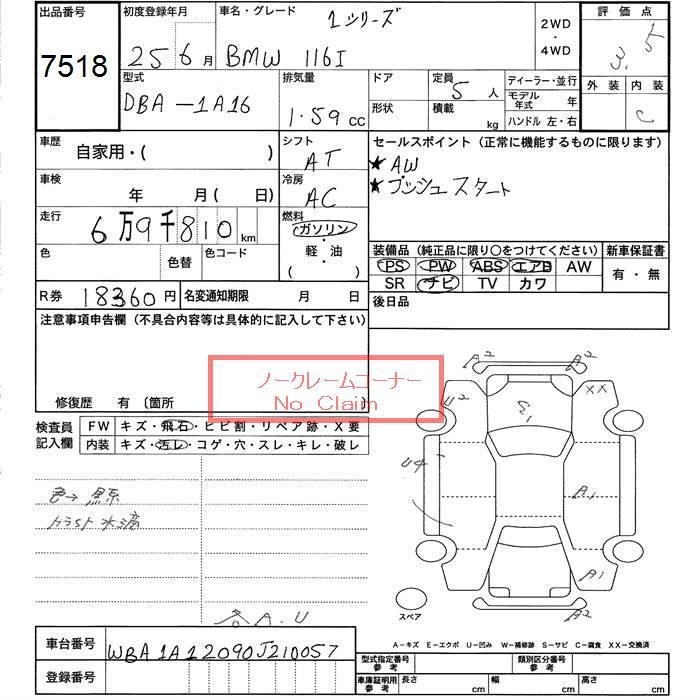 出品番号 初度登録年月 車名・グレード 1シリーズ 2WD・4WD 評価点
7518 25 6月 BMW 116I 3.5
型式 排気量 ドア 定員 5人 ディーラー・並行 外装 内装
DBA-1A16 1.59cc 形状 積載 kg モデル年式 年 C
ハンドル 左・右
車歴 自家用・( ) シフト AT セールスポイント (正常に機能するものに限ります)
★AW
★プッシュスタート
車検 年 月(日) 冷房 AC
走行 6万9千810km 燃料 ガソリン・軽・油 ( )
色 色替 色コード
装備品 (純正品に限り○をつけてください) 新車保証書
PS PW ABS エアB AW 有・無
SR ナビ TV カワ
R券 18360円 名変通知期限 月 日 後日品
注意事項申告欄 (不具合内容等は具体的に記入して下さい)
ノークレームコーナー
No Claim
修復歴 有 〔箇所
検査員記入欄 FW キズ・飛石・ヒビ割・リペア跡・X要
内装 キズ・汚レ・コゲ・穴・スレ・キレ・破レ
色→黒系
水滴
各A.U
A2 A2
U2 XX
U4 A1
A1
A2
スペア
A-キズ E-エクボ U-凹み W-補修跡 S-サビ C-腐食 XX-交換済
車台番号 WBA1A12090J210057
登録番号
型式指定番号 参考 類別区分番号 参考
車庫証明用 参考 長さ cm 幅 cm 高さ cm